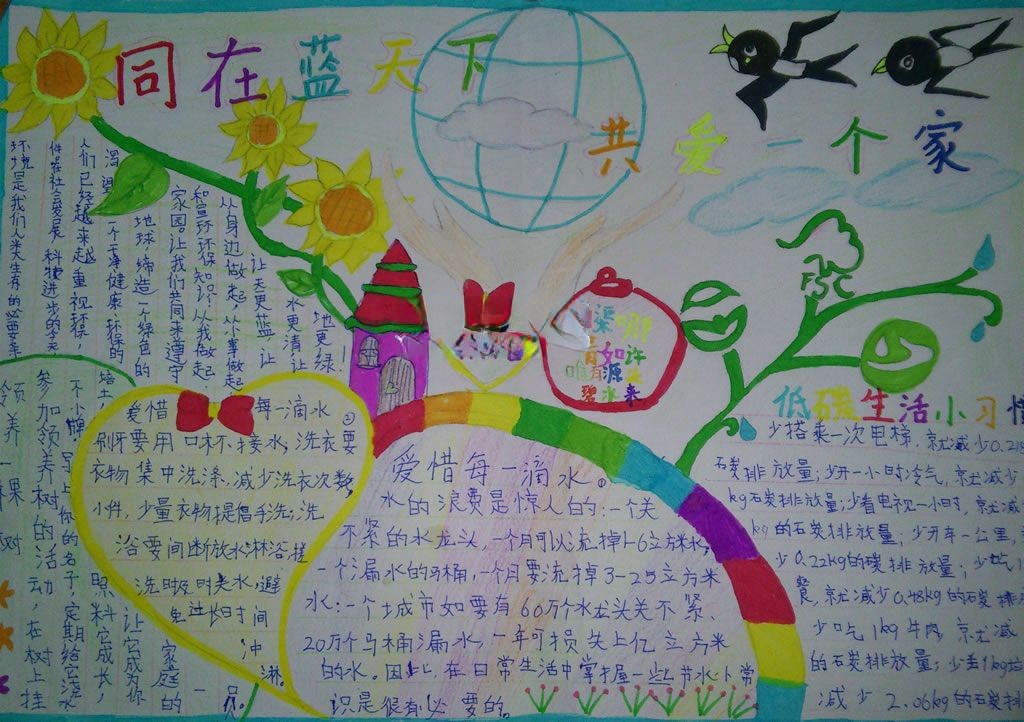 同在蓝天下
共爱一个家
环境是我们人类生存的必要条
件。在社会发展,科技进步的今天,
人们已经越来越重视环保,
渴望一个
健康、环保的
地球,缔造一个绿色的
家园。让我们共同来遵守
和
环保知识,从我做起,
从身边做起,从小事做起,
让天更蓝,让
水更清,让
地更绿!
问渠哪
得
清如许
唯有源
头
碧水来
FSC
爱惜每一滴水
刷牙要用口杯接水,洗衣要
衣物集中洗涤,减少洗衣次数,
小件,少量衣物提倡手洗;洗
浴要间断放水淋浴,搓
洗时
关水,避
免过长时间
冲
淋。
爱惜每一滴水。
水的浪费是惊人的:一个关
不紧的水龙头,一个月可以流掉1-6立方米水;
一个漏水的马桶,一个月要流掉3-25立方米
水;一个城市如要有60万个水龙头关不紧、
20万个马桶漏水,一年可损失上亿立方米
的水。因此,在日常生活中掌握一些节水小常
识是很有必要的。
低碳生活小习惯
少搭乘一次电梯,就减少0.21
石炭排放量;少开一小时冷气,就减少
kg石炭排放量;少看电视一小时,就减
kg的石炭排放量;少开车一公里,
少0.22kg的碳排放量;少吃
餐,就减少0.48kg的石炭排
少吃1kg牛肉,就减
的石炭排放量;少丢1kg垃
减少2.06kg的石炭排
领养一棵树
参加领养树的活动,在树上挂
不小牌,写上你的名子,定期给它浇水
培土,
照料它成长,
让它成为你
家庭的
一员。